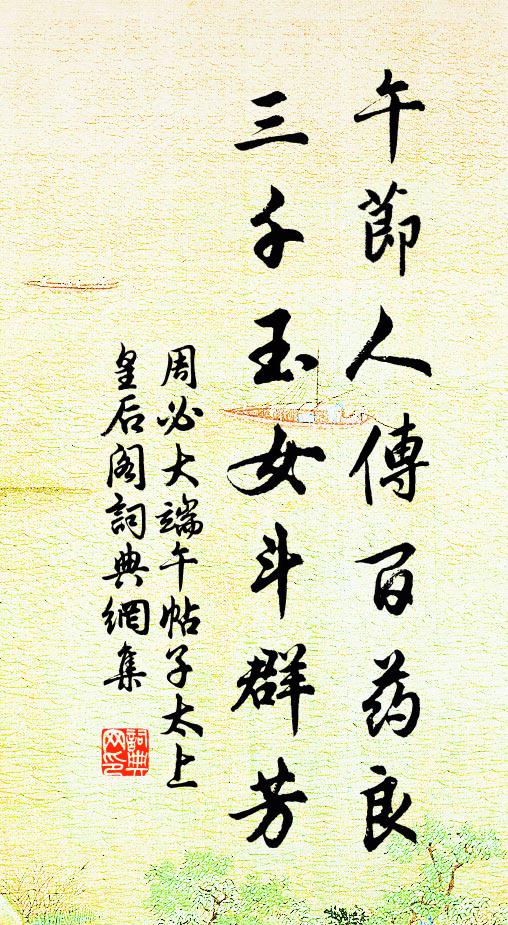 午節人傳百药良
三千玉女斗群芳
周必大端午帖子太上
皇后阁詞典網集
詞典
网印